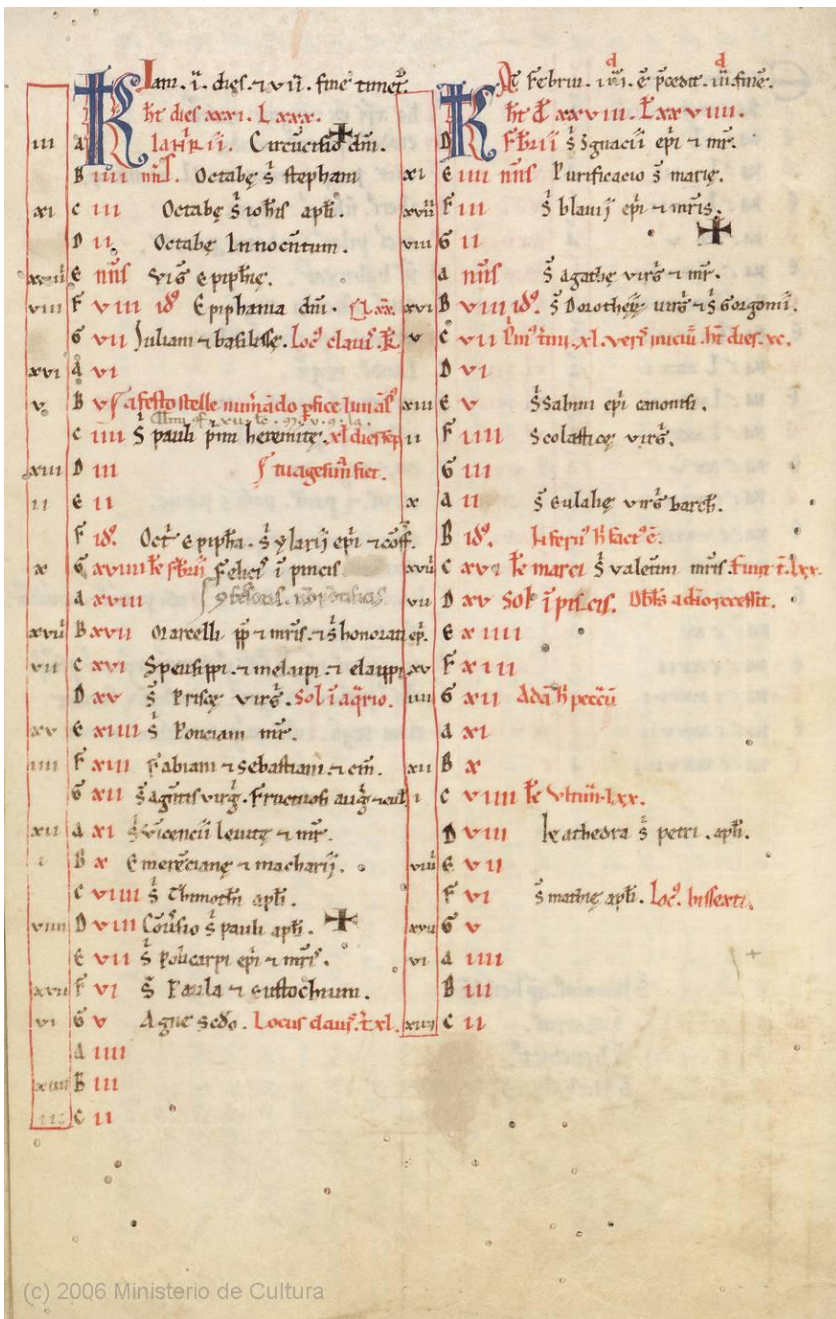 Ian. i. dies. ⁊ vii. fine timet̃.
h̃t dies xxxi. L xxx.
iii a IANR̃II. Circũcisio dñi.
B iiii nñs. Octabę s̃ stephani
xi c iii Octabę s̃ ioh̃is apłi.
D ii Octabę Innocẽtum.
E nñs vig̃ epiphñe.
viii F viii id᷒. Epiphania dñi.
G vii Iuliani ⁊ basilissę. Loc᷒ claui᷒
xvi a vi
v B v a festo stelle num̃ando ꝑfice lunã
c iiii s̃ pauli p̃mi heremitę. xl dies sep
xiii D iii tuagesim̃ fiet.
ii E ii
F id᷒. Oct̃ epipħa. s̃ ylarij ep̃i ⁊ cõff.
x G xviiii kł febr̃ii Felic᷒ ĩ pincis
a xviii
xviii B xvii Marcelli pp̃ ⁊ mr̃is. ⁊ s̃ honorati ep̃.
vii c xvi Speusippi. ⁊ melasipi ⁊ elasippi
D xv s̃ Priscę virg̃. Sol ĩ aq̃rio.
xv E xiiii s̃ Ponciani mr̃.
iiii F xiii Fabiani ⁊ Sebastiani
G xii s̃ agnetis virg̃. Fructuosi aug̃ ⁊ eul̃
xii a xi s̃ Vicencii leuite ⁊ mr̃.
i B x Emerẽcianę ⁊ macharij.
c viiii s̃ Thimothi apłi.
viiii D viii Cõu̾sio s̃ pauli apłi.
E vii s̃ Policarpi ep̃i ⁊ mr̃is.
xvii F vi s̃ Paula ⁊ eustochium.
vi G v Agnę scd̃o. Locus claui᷒. ĩ xl.
a iiii
xiiii B iii
iii c ii
Febrii.
h̃t d̃ xxviii. L xxviiii.
D Feb̃rii s̃ Ignacii ep̃i ⁊ mr̃.
xi E iiii nñs Purificacio s̃ marię.
xviiii F iii s̃ blasij ep̃i ⁊ mr̃is.
viii G ii
a nñs s̃ agathę virg̃ ⁊ mr̃.
xvi B viii id᷒. s̃ Dorotheę uirg̃ ⁊ s̃ Gorgonii.
v c vii P̃m᷒ xl. ver᷒ iniciũ. h̃t dies. xc.
D vi
xiii E v s̃ Sabini ep̃i canonisi.
ii F iiii Scolasticę virg̃.
G iii
x a ii s̃ eulalię virg̃ barch̃.
B id᷒. fact᷒ ẽ.
xviii c xvi kł marci s̃ valentini mr̃is.
vii D xv Sol ĩ piscis. Dbl̃s a dño recessit.
E xiiii
xv F xiii
iiii G xii Adã h̃ peccãũ
a xi
xii B x
i c viiii kł Vltim᷒ lxx.
D viii kathedra s̃ petri. apłi.
viiii E vii
F vi s̃ mathię apłi. Loc᷒. bissexti.
xvii G v
vi a iiii
B iii
xiiii c ii
(c) 2006 Ministerio de Cultura